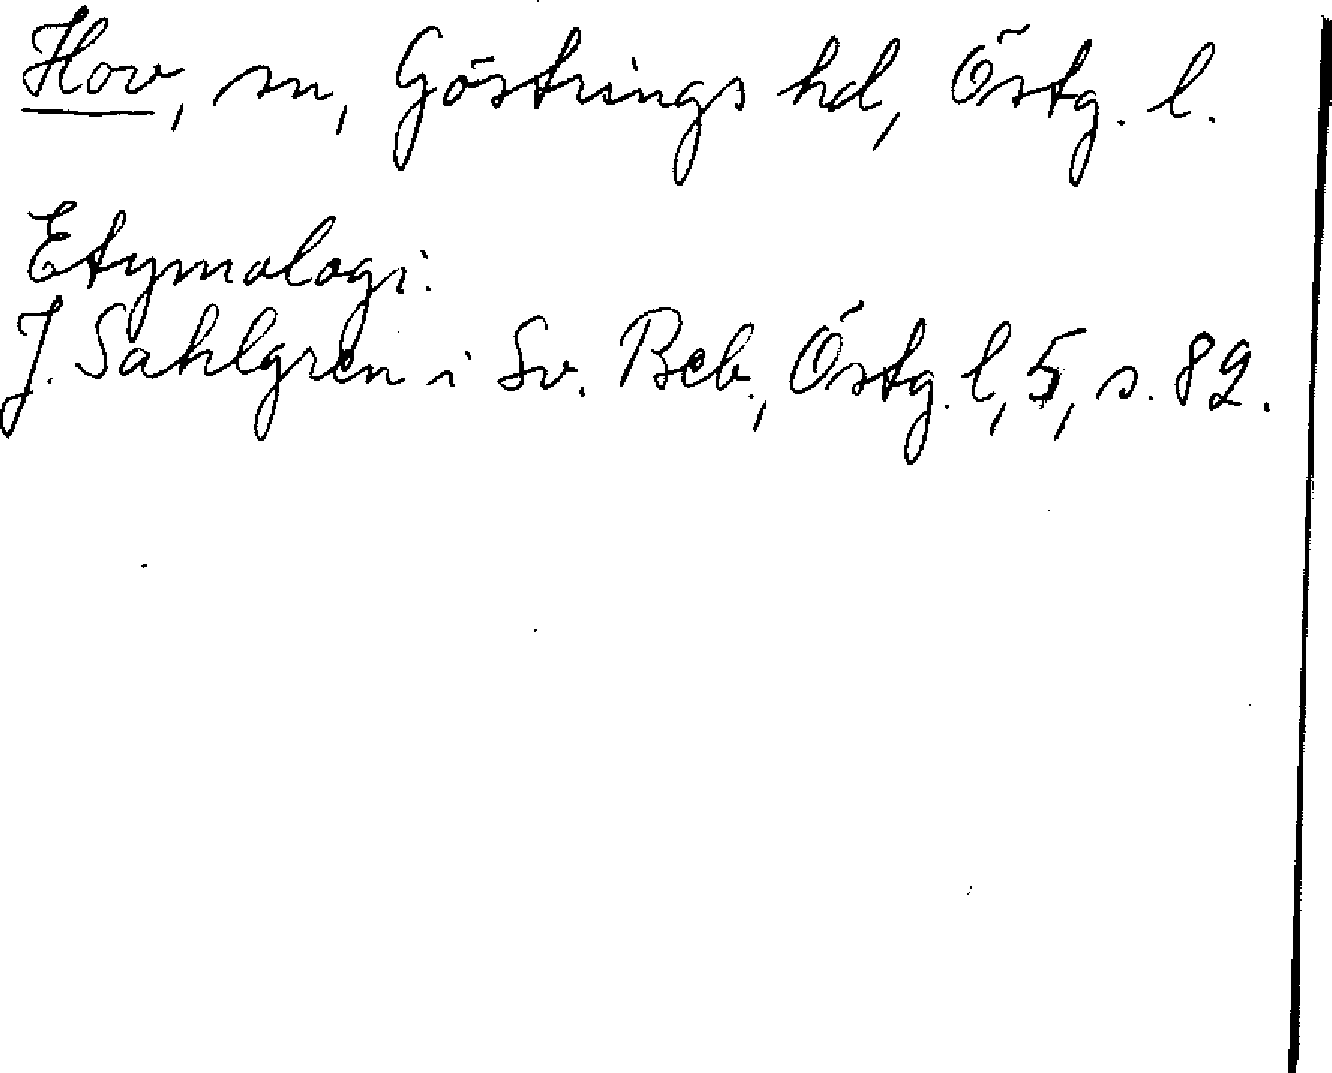 Hov, sn, Göstrings hd, Östg. l.
Etymologi:
J. Sahlgren i Sv. Beb., Östg. l, 5, s. 82.